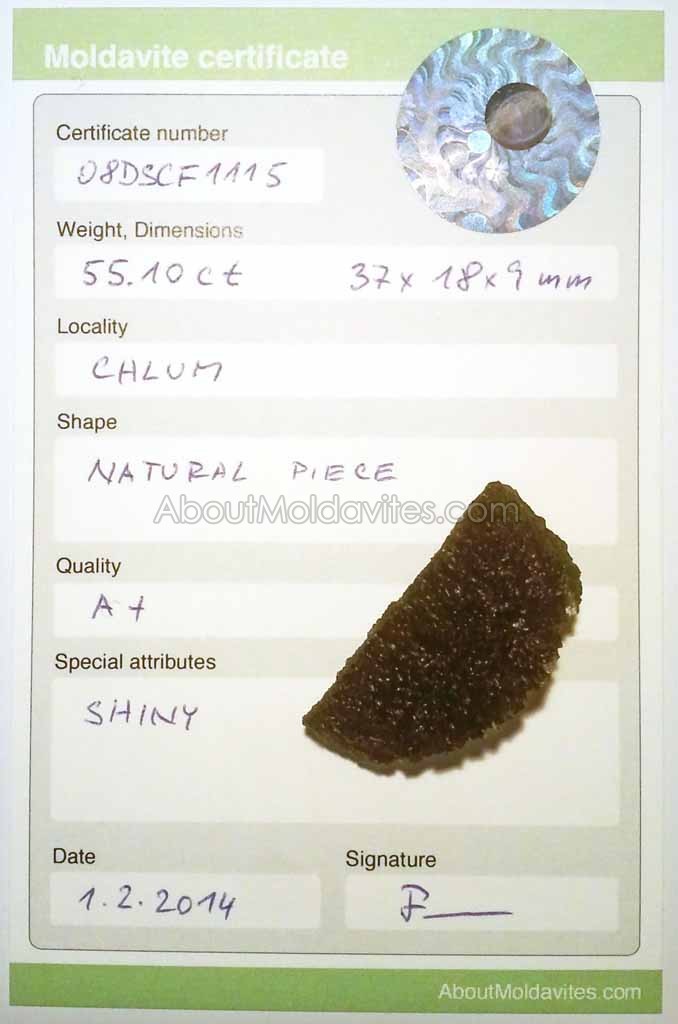 Moldavite certificate
Certificate number
08DSCF1115
Weight, Dimensions
55.10 ct 37 x 18 x 9 mm
Locality
CHLUM
Shape
NATURAL PIECE
AboutMoldavites.com
Quality
A+
Special attributes
SHINY
Date Signature
1.2.2014
AboutMoldavites.com